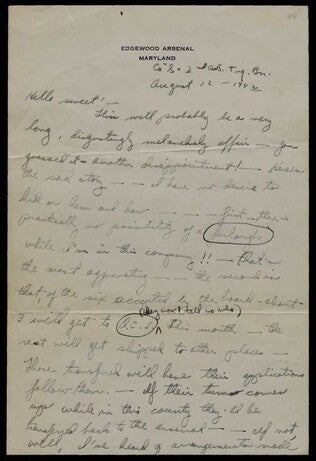 EDGEWOOD ARSENAL
MARYLAND
Co "S" - 2nd Trg. Bn.
August 12 - 1942
Hello sweet! -
This will probably be a very
long, disgustingly melancholy affair - you
guessed it - another disappointment! - Here's
the sad story - - I have no desire to
- - - first - there is
practically no possibility of a furlough
while I'm in this company!! - that's
the most aggravating - - - the second is
that, of the six accepted by the board - about
(they won't tell us who)
3 will get to O.C.S. this month - the
rest will get shipped to other places -
Those transfered will have their applications
follow them. - If their turn comes
up while in this country they'll be
transfered back to the arsenal - - if not,
well, I've heard of arrangements made